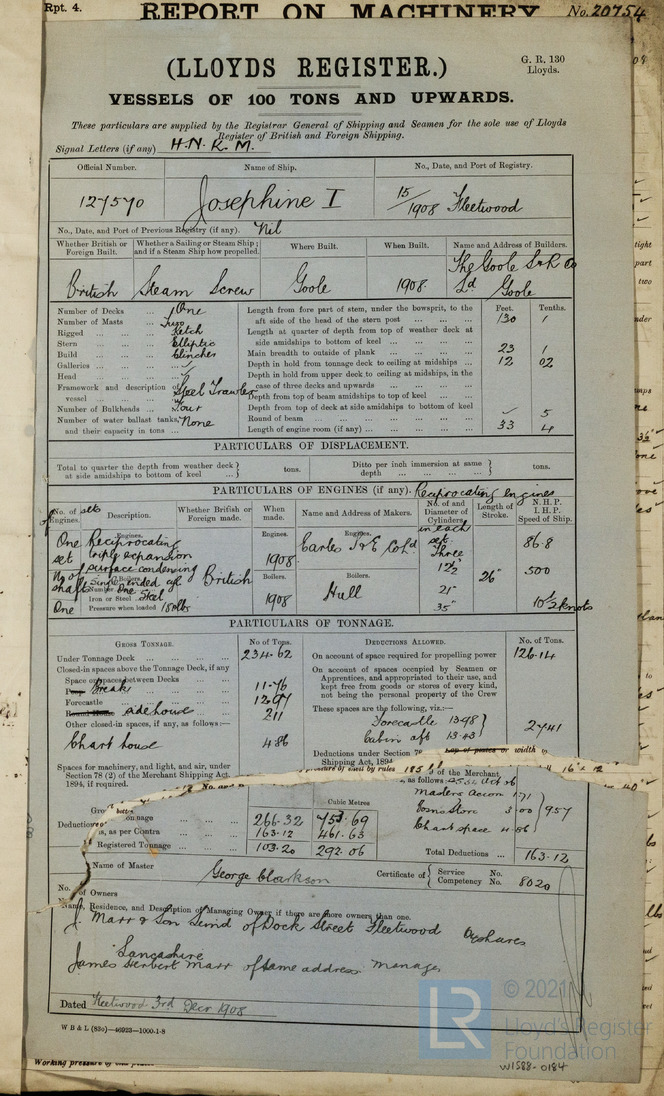 Rpt. 4.
REPORT ON MACHINERY
No. 20754
(LLOYDS REGISTER.)
G. R. 130
Lloyds.
VESSELS OF 100 TONS AND UPWARDS.
These particulars are supplied by the Registrar General of Shipping and Seamen for the sole use of Lloyds
Register of British and Foreign Shipping.
Signal Letters (if any) H.N.K.M.
Official Number. Name of Ship. No., Date, and Port of Registry.
127570 Josephine I 15/1908 Fleetwood
No., Date, and Port of Previous Registry (if any). Nil
Whether British or Foreign Built. Whether a Sailing or Steam Ship; and if a Steam Ship how propelled. Where Built. When Built. Name and Address of Builders.
British Steam Screw Goole 1908 The Goole S & R Co Ld Goole
Number of Decks ... One
Number of Masts ... Two
Rigged ... Ketch
Stern ... Elliptic
Build ... Clincher
Galleries ...
Head ...
Framework and description of vessel ... Steel Trawler
Number of Bulkheads ... Four
Number of water ballast tanks, and their capacity in tons ... None
Feet. Tenths.
Length from fore part of stem, under the bowsprit, to the aft side of the head of the stern post ... 130 1
Length at quarter of depth from top of weather deck at side amidships to bottom of keel ...
Main breadth to outside of plank ... 23 1
Depth in hold from tonnage deck to ceiling at midships ... 12 02
Depth in hold from upper deck to ceiling at midships, in the case of three decks and upwards ...
Depth from top of beam amidships to top of keel ...
Depth from top of deck at side amidships to bottom of keel
Round of beam ... 5
Length of engine room (if any) ... 33 4
PARTICULARS OF DISPLACEMENT.
Total to quarter the depth from weather deck at side amidships to bottom of keel ... tons.
Ditto per inch immersion at same depth ... tons.
PARTICULARS OF ENGINES (if any). Reciprocating engines
No. of sets of Engines. Description. Whether British or Foreign made. When made. Name and Address of Makers. No. of and Diameter of Cylinders in each set. Length of Stroke. N.H.P. I.H.P. Speed of Ship.
One set
No of shafts
One
Engines.
Reciprocating
triple expansion
surface condensing
Boilers.
Single ended cyl
Number One
Iron or Steel Steel
Pressure when loaded 180 lbs
British
Engines. 1908
Boilers. 1908
Engines. Earles S & E Co Ld
Boilers. Hull
Three
12½
21"
35"
26"
86.8
500
10½ knots
PARTICULARS OF TONNAGE.
GROSS TONNAGE. No. of Tons.
Under Tonnage Deck ... 234.62
Closed-in spaces above the Tonnage Deck, if any
Space or spaces between Decks
Poop Break 11.76
Forecastle ... 12.97
Round House side house 2.11
Other closed-in spaces, if any, as follows:—
Chart house 4.86
Spaces for machinery, and light, and air, under
Section 78 (2) of the Merchant Shipping Act,
1894, if required.
DEDUCTIONS ALLOWED. No. of Tons.
On account of space required for propelling power 126.14
On account of spaces occupied by Seamen or
Apprentices, and appropriated to their use, and
kept free from goods or stores of every kind,
not being the personal property of the Crew
These spaces are the following, viz.:—
Forecastle 13.98
Cabin aft 13.43
27.41
Deductions under Section 79
Shipping Act, 1894
of the Merchant
, as follows
Masters Accon 1.71
Bosns Store 3.00
Chart space 4.86
9.57
Cubic Metres
266.32 753.69
Deductions, as per Contra 163.12 461.63
Registered Tonnage ... 103.20 292.06
Total Deductions ... 163.12
Name of Master George Clarkson
Certificate of Service No. Competency No. 8020
No. of Owners
Name, Residence, and Description of Managing Owner if there are more owners than one.
J. Marr & Son Limd of Dock Street Fleetwood
Lancashire
James Herbert Marr of same address Manager
Dated Fleetwood 3rd Decr 1908
W B & L (83o)—46923—1000-1-8
Working pressure of
LR
© 2021
Lloyd's Register
Foundation
W1588-0184